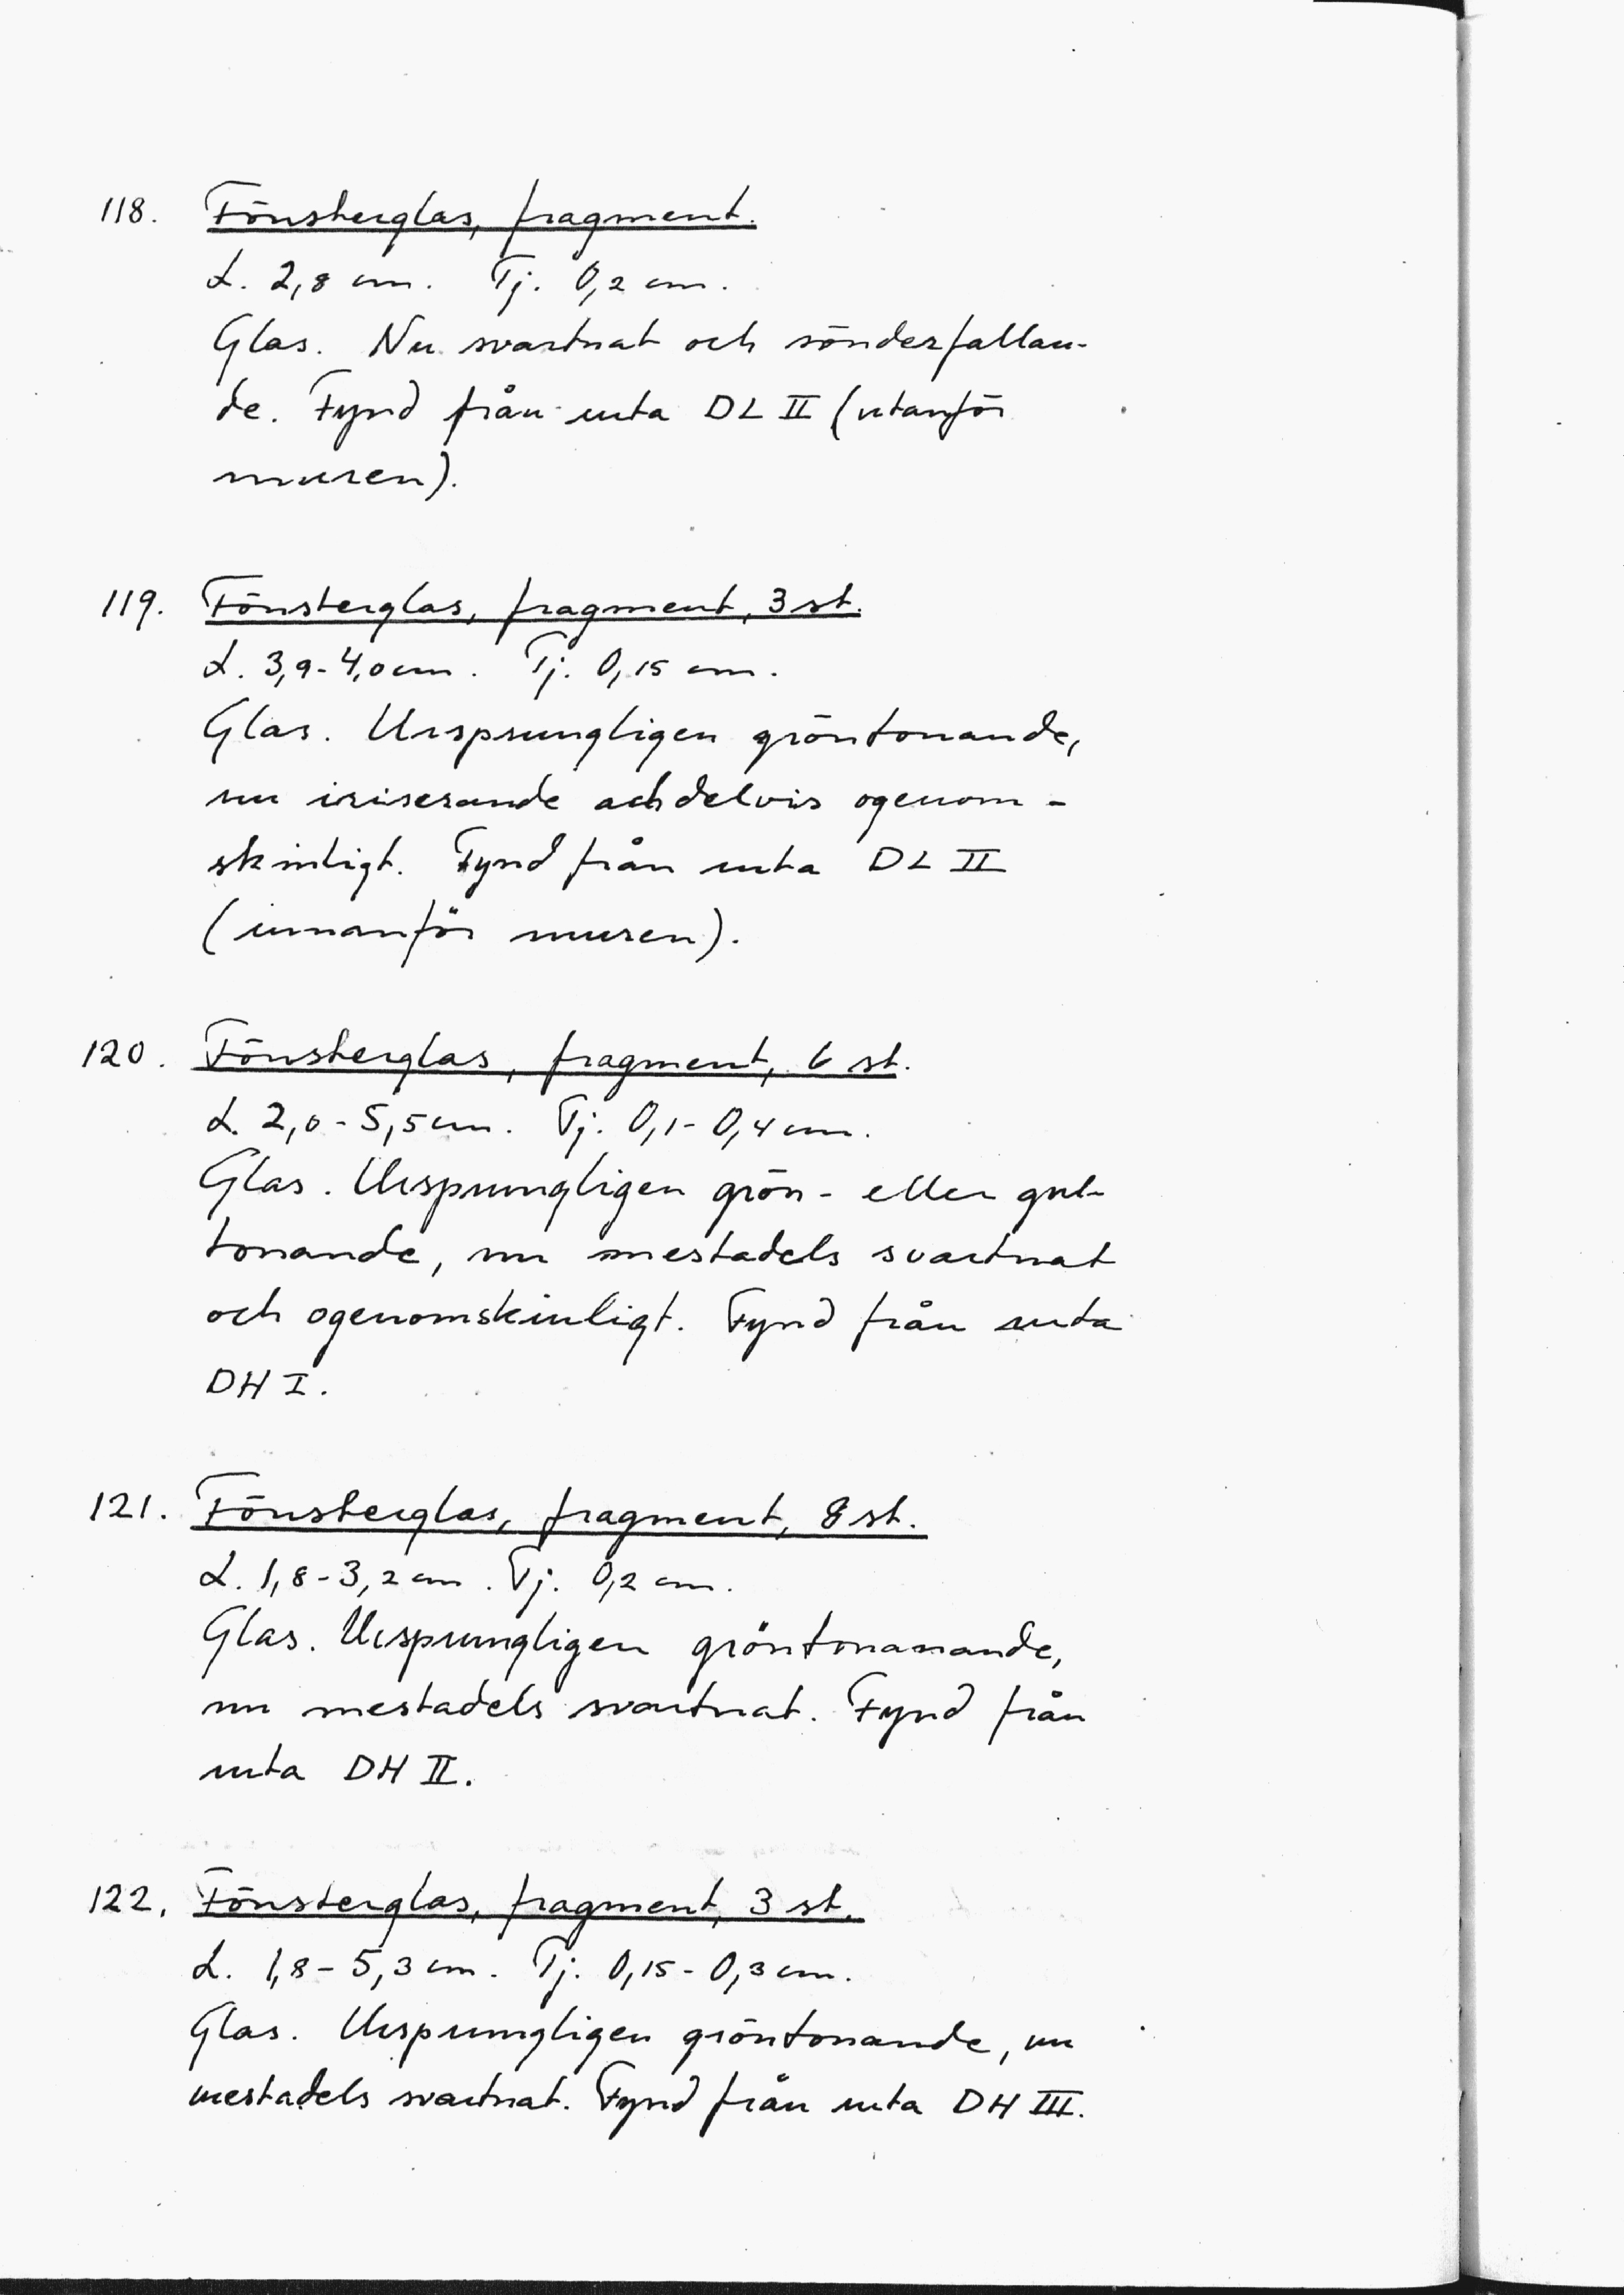 118. Fönsterglas, fragment.
L. 2,8 cm. Tj. 0,2 cm.
Glas. Nu svartnat och sönderfallan-
de. Fynd från ruta DL II (utanför
muren).
119. Fönsterglas, fragment, 3 st.
L. 3,9-4,0 cm. Tj. 0,15 cm.
Glas. Ursprungligen gröntonande,
nu iriserande och delvis ogenom-
skinligt. Fynd från ruta DL II
(innanför muren).
120. Fönsterglas, fragment, 6 st.
L. 2,0-5,5 cm. Tj. 0,1-0,4 cm.
Glas. Ursprungligen grön- eller gul-
tonande, nu mestadels svartnat
och ogenomskinligt. Fynd från ruta
DH I.
121. Fönsterglas, fragment, 8 st.
L. 1,8-3,2 cm. Tj. 0,2 cm.
Glas. Ursprungligen gröntonanande,
nu mestadels svartnat. Fynd från
ruta DH II.
122. Fönsterglas, fragment, 3 st.
L. 1,8-5,3 cm. Tj. 0,15-0,3 cm.
Glas. Ursprungligen gröntonande, nu
mestadels svartnat. Fynd från ruta DH III.